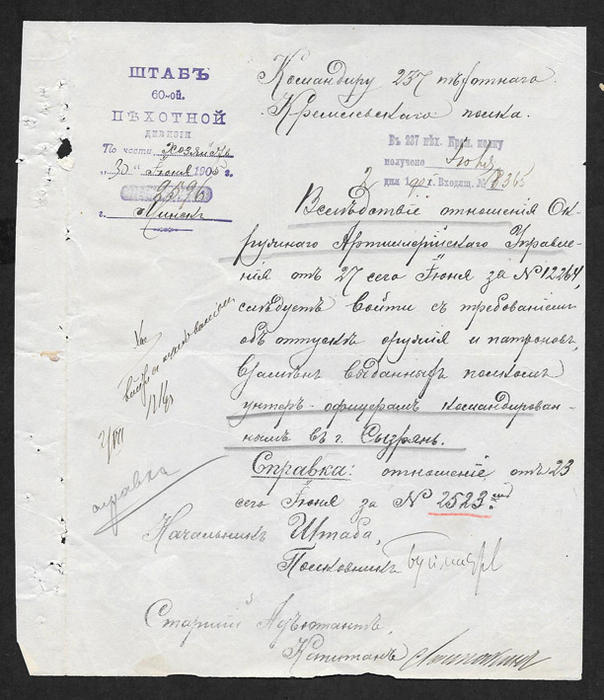 ШТАБЪ
60-ой.
ПѢХОТНОЙ
ДИВИЗІИ
По части Хозяйств.
„30" Іюня 1905 г.
2596
г.
Командиру 237 пѣхотнаго
Кремлевскаго полка.
Въ 237 пѣх. Крем. полку
получено 2 Іюля
дня 190 г. Входящ. № 8365
Вслѣдствіе отношенія Ок-
ружнаго Артиллерійскаго Управле-
нія отъ 27 сего Іюня за № 12264,
слѣдуетъ войти съ требованіемъ
объ отпускѣ оружія и патроновъ,
взамѣнъ выданныхъ полкомъ
унтеръ-офицерамъ командирован-
нымъ въ г. Сызрань.
Справка: отношеніе отъ 23
сего Іюня за № 2523.
2/VII
справка
Начальникъ Штаба,
Полковникъ
Старшій Адъютантъ,
Капитанъ